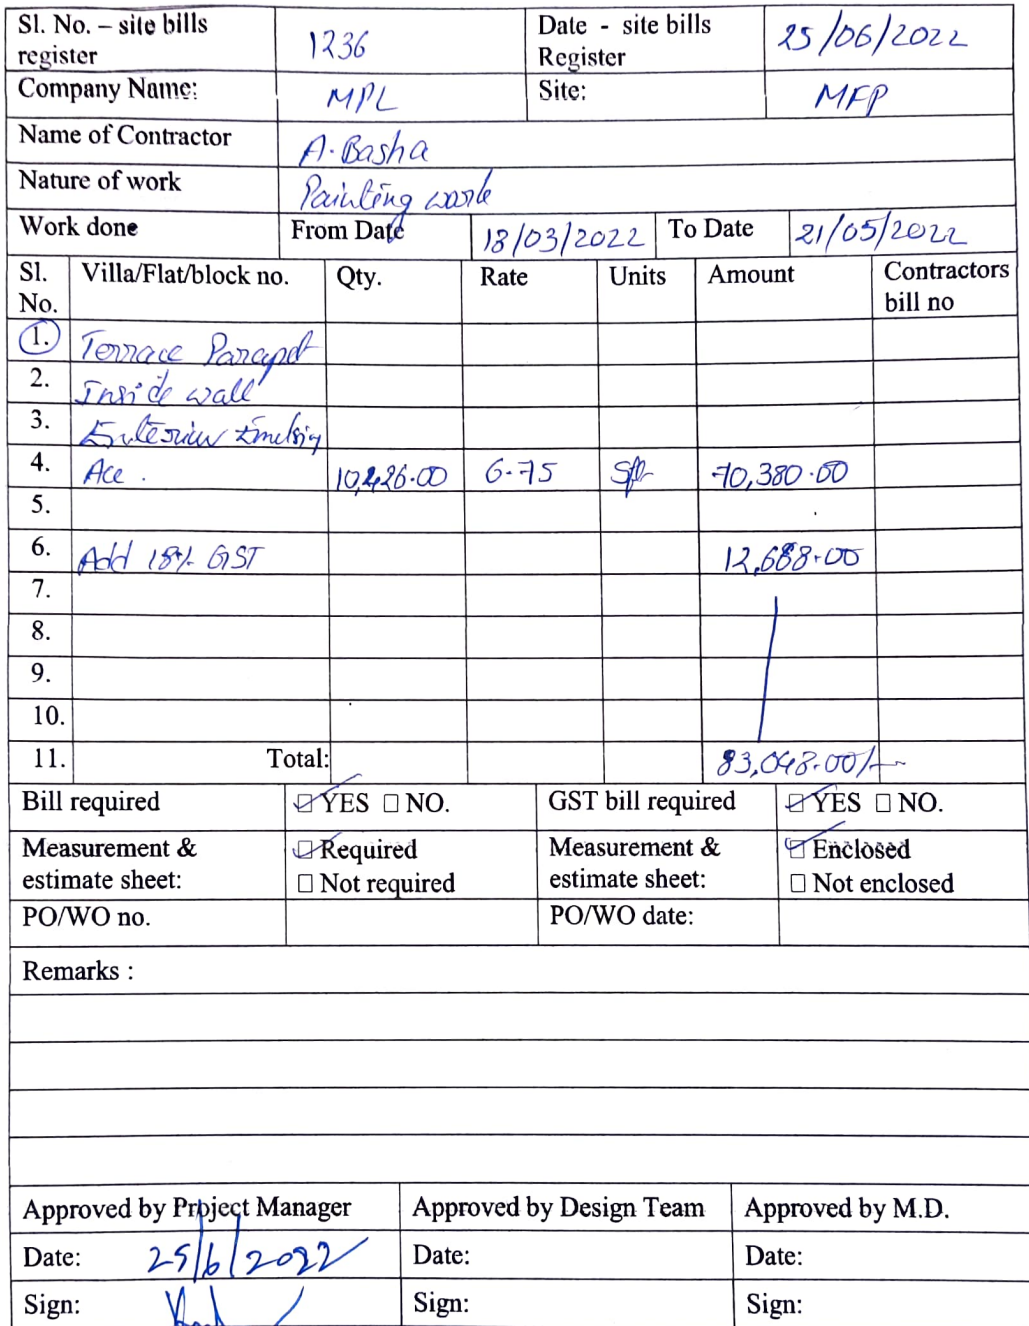 Sl. No. – site bills register 1236 Date - site bills Register 25/06/2022
Company Name: MPL Site: MFP
Name of Contractor A. Basha
Nature of work Painting work
Work done From Date 18/03/2022 To Date 21/05/2022
Sl. No. Villa/Flat/block no. Qty. Rate Units Amount Contractors bill no
1. Terrace Parapet
2. Inside wall
3. Exterior Emulsion
4. Ace. 10,426.00 6.75 Sft 70,380.00
5.
6. Add 18% GST 12,668.00
7.
8.
9.
10.
11. Total: 83,048.00/-
Bill required YES NO. GST bill required YES NO.
Measurement & estimate sheet: Required Not required Measurement & estimate sheet: Enclosed Not enclosed
PO/WO no. PO/WO date:
Remarks :
Approved by Project Manager Approved by Design Team Approved by M.D.
Date: 25/6/2022 Date: Date:
Sign: Sign: Sign: